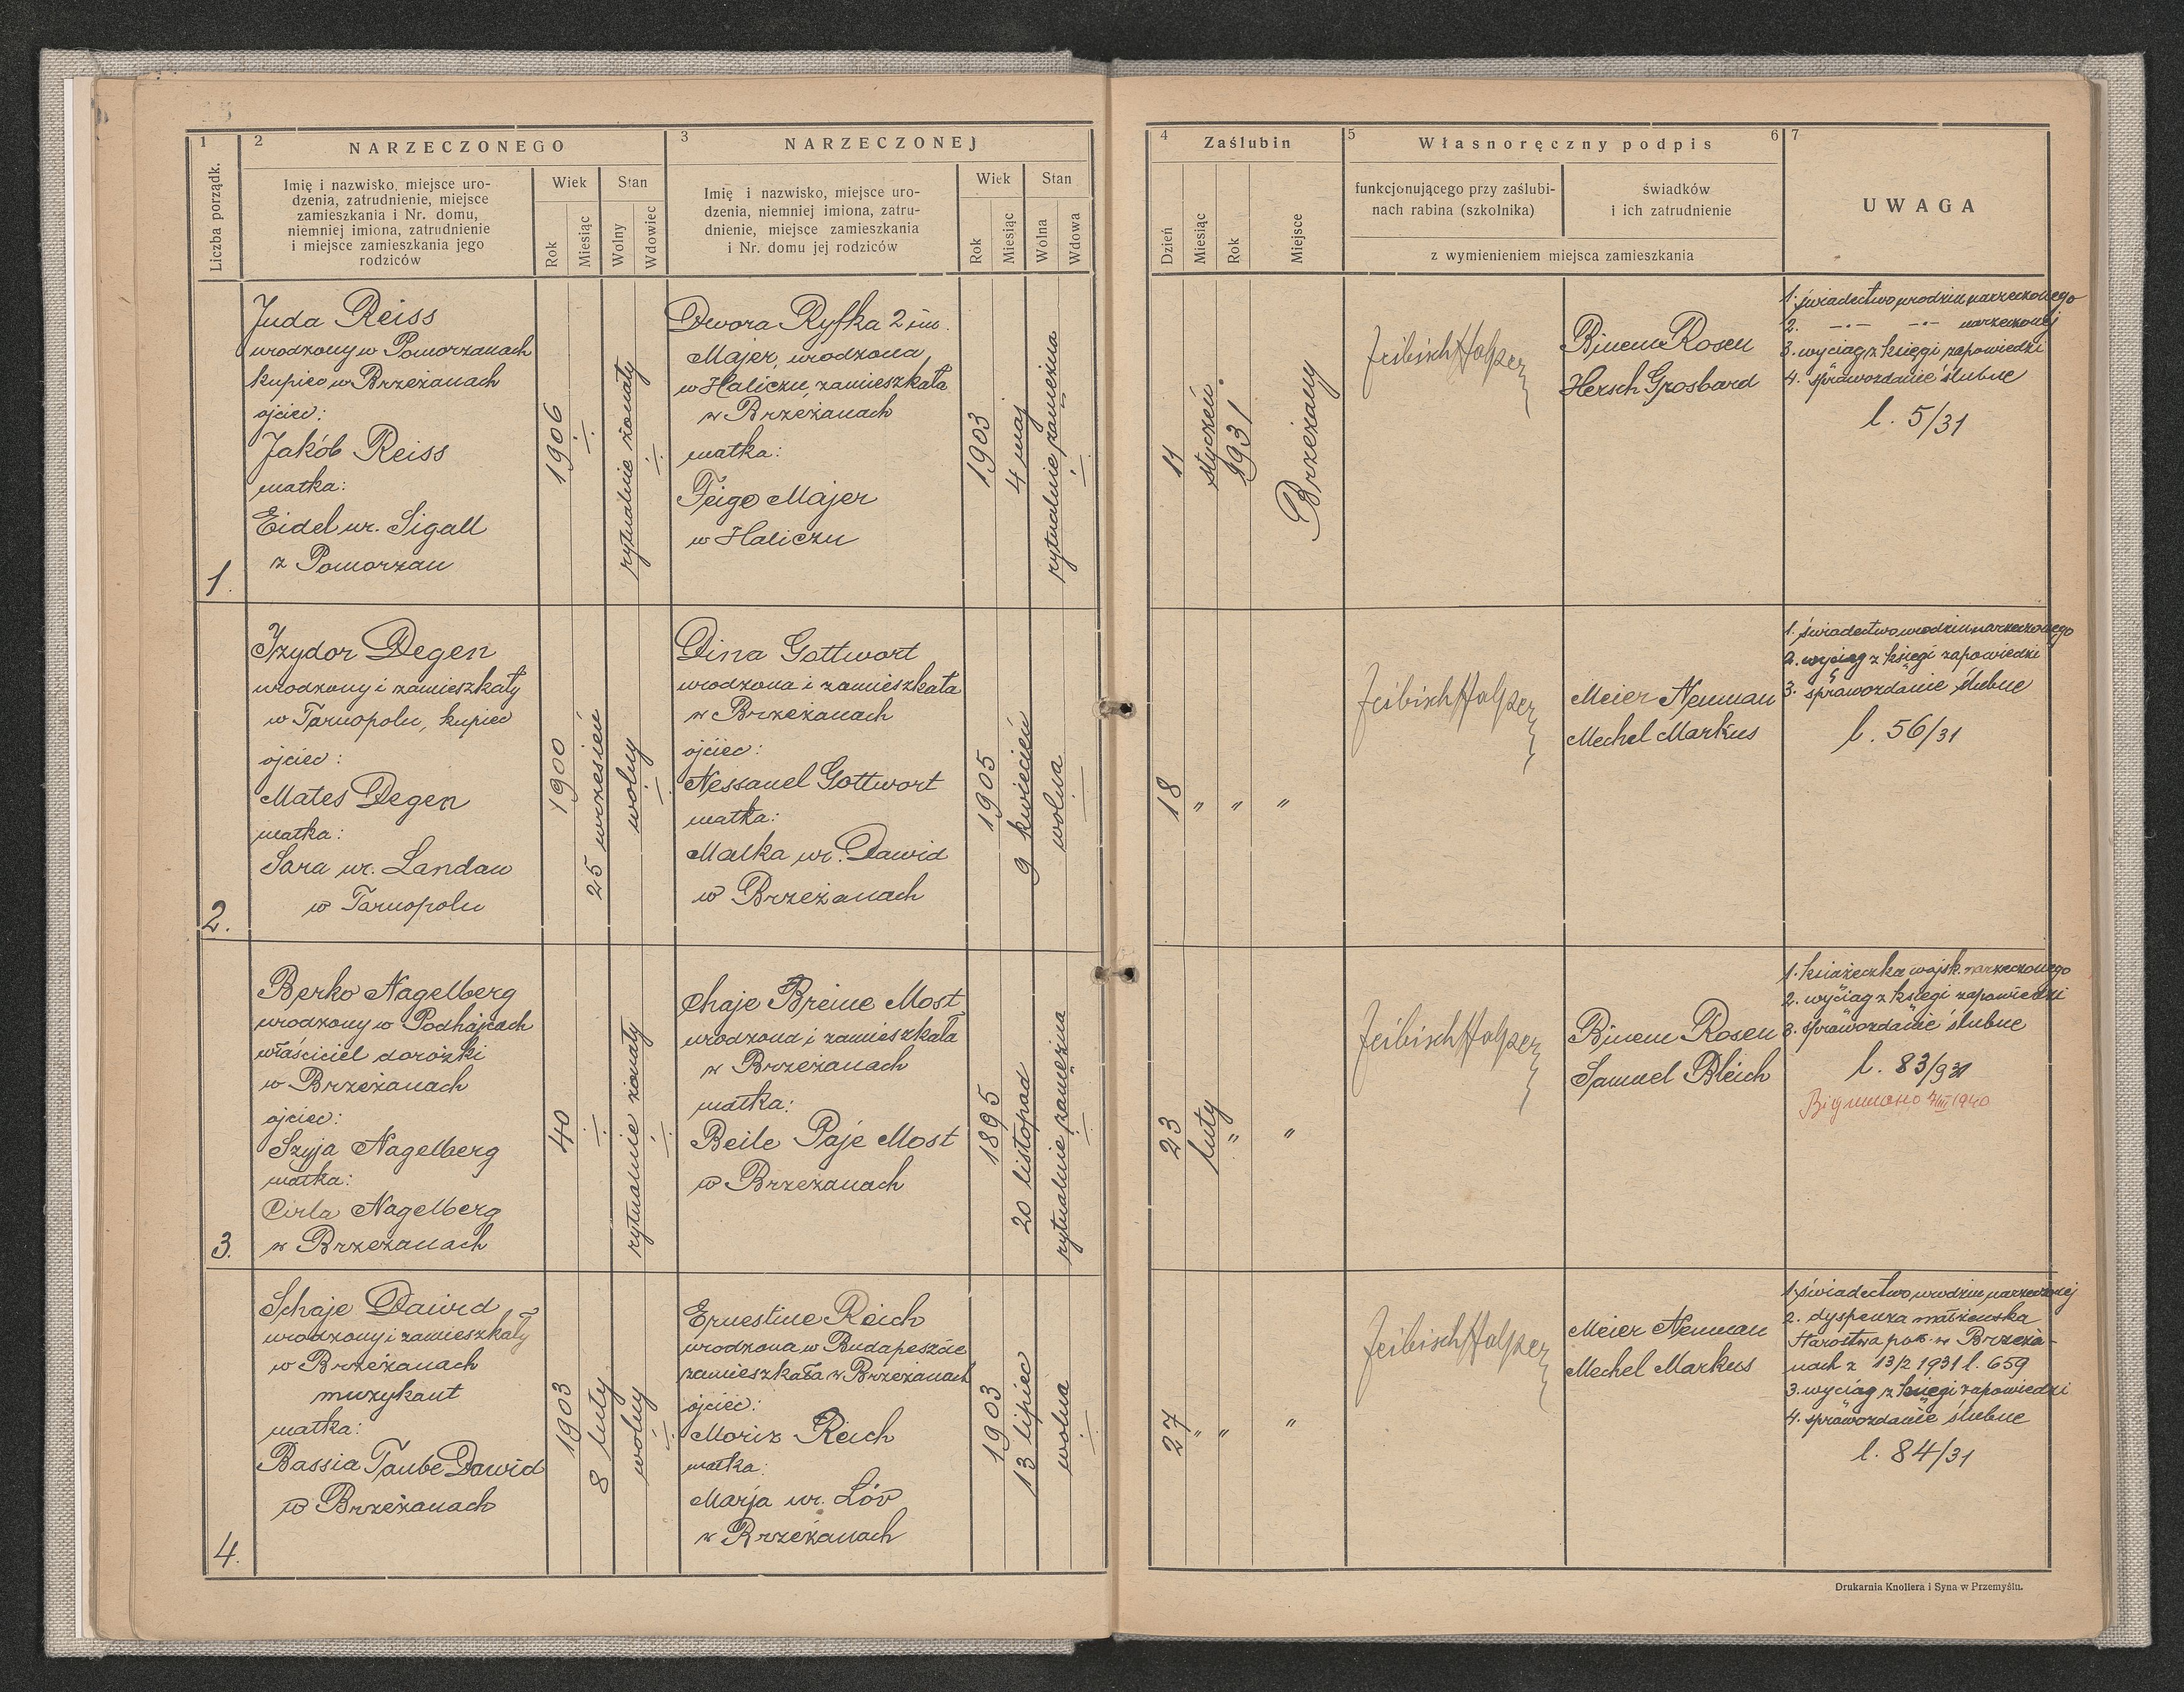 1
2
NARZECZONEGO
3
NARZECZONEJ
Liczba porządk.
Imię i nazwisko, miejsce uro-
dzenia, zatrudnienie, miejsce
zamieszkania i Nr. domu,
niemniej imiona, zatrudnienie
i miejsce zamieszkania jego
rodziców
Wiek
Stan
Rok
Miesiąc
Wolny
Wdowiec
Imię i nazwisko, miejsce uro-
dzenia, niemniej imiona, zatru-
dnienie, miejsce zamieszkania
i Nr. domu jej rodziców
Wiek
Stan
Rok
Miesiąc
Wolna
Wdowa
4
Zaślubin
5
Własnoręczny podpis
6
7
Dzień
Miesiąc
Rok
Miejsce
funkcjonującego przy zaślubi-
nach rabina (szkolnika)
świadków
i ich zatrudnienie
z wymienieniem miejsca zamieszkania
UWAGA
1.
Juda Reiss
urodzony w Pomorzanach
kupiec w Brzeżanach
ojciec:
Jakób Reiss
matka:
Eidel ur. Sigall
z Pomorzan
1906
rytualnie żonaty
Dwora Ryfka 2 im.
Majer, urodzona
w Haliczu, zamieszkała
w Brzeżanach
matka:
Feige Majer
w Haliczu
1903
4 maj
rytualnie zamężna
11
styczeń
1931
Brzeżany
Feibisch Halper
Binem Rosen
Hersch Grosbard
1. świadectwo urodzin narzeczonego
2. -"- -"- narzeczonej
3. wyciąg z księgi zapowiedzi
4. sprawozdanie ślubne
l. 5/31
2.
Izydor Degen
urodzony i zamieszkały
w Tarnopolu, kupiec
ojciec:
Mates Degen
matka:
Sara ur. Landau
w Tarnopolu
1900
25 wrzesień
wolny
Dina Gottwort
urodzona i zamieszkała
w Brzeżanach
ojciec:
Nessanel Gottwort
matka:
Malka ur. Dawid
w Brzeżanach
1905
9 kwiecień
wolna
18
" " "
Feibisch Halper
Meier Neuman
Mechel Markus
1. świadectwo urodzin narzeczonego
2. wyciąg z księgi zapowiedzi
3. sprawozdanie ślubne
l. 56/31
3.
Berko Nagelberg
urodzony w Podhajcach
właściciel dorożki
w Brzeżanach
ojciec:
Szyja Nagelberg
matka:
Cirla Nagelberg
w Brzeżanach
40
rytualnie żonaty
Chaje Breine Most
urodzona i zamieszkała
w Brzeżanach
matka:
Beile Paje Most
w Brzeżanach
1895
20 listopad
rytualnie zamężna
23
luty
" "
Feibisch Halper
Binem Rosen
Samuel Bleich
1. książeczka wojsk. narzeczonego
2. wyciąg z księgi zapowiedzi
3. sprawozdanie ślubne
l. 83/931
4.
Schaje Dawid
urodzony i zamieszkały
w Brzeżanach
muzykant
matka:
Bassia Taube Dawid
w Brzeżanach
1903
8 luty
wolny
Ernestine Reich
urodzona w Budapeszcie
zamieszkała w Brzeżanach
ojciec:
Moriz Reich
matka:
Marja ur. Löv
w Brzeżanach
1903
13 lipiec
wolna
27
" " "
Feibisch Halper
Meier Neuman
Mechel Markus
1. świadectwo urodzin narzeczonej
2. dyspenza małżeńska
Starostwa pow. w Brzeża-
nach z 13/2 1931 l. 659
3. wyciąg z księgi zapowiedzi
4. sprawozdanie ślubne
l. 84/31
Drukarnia Knollera i Syna w Przemyślu.